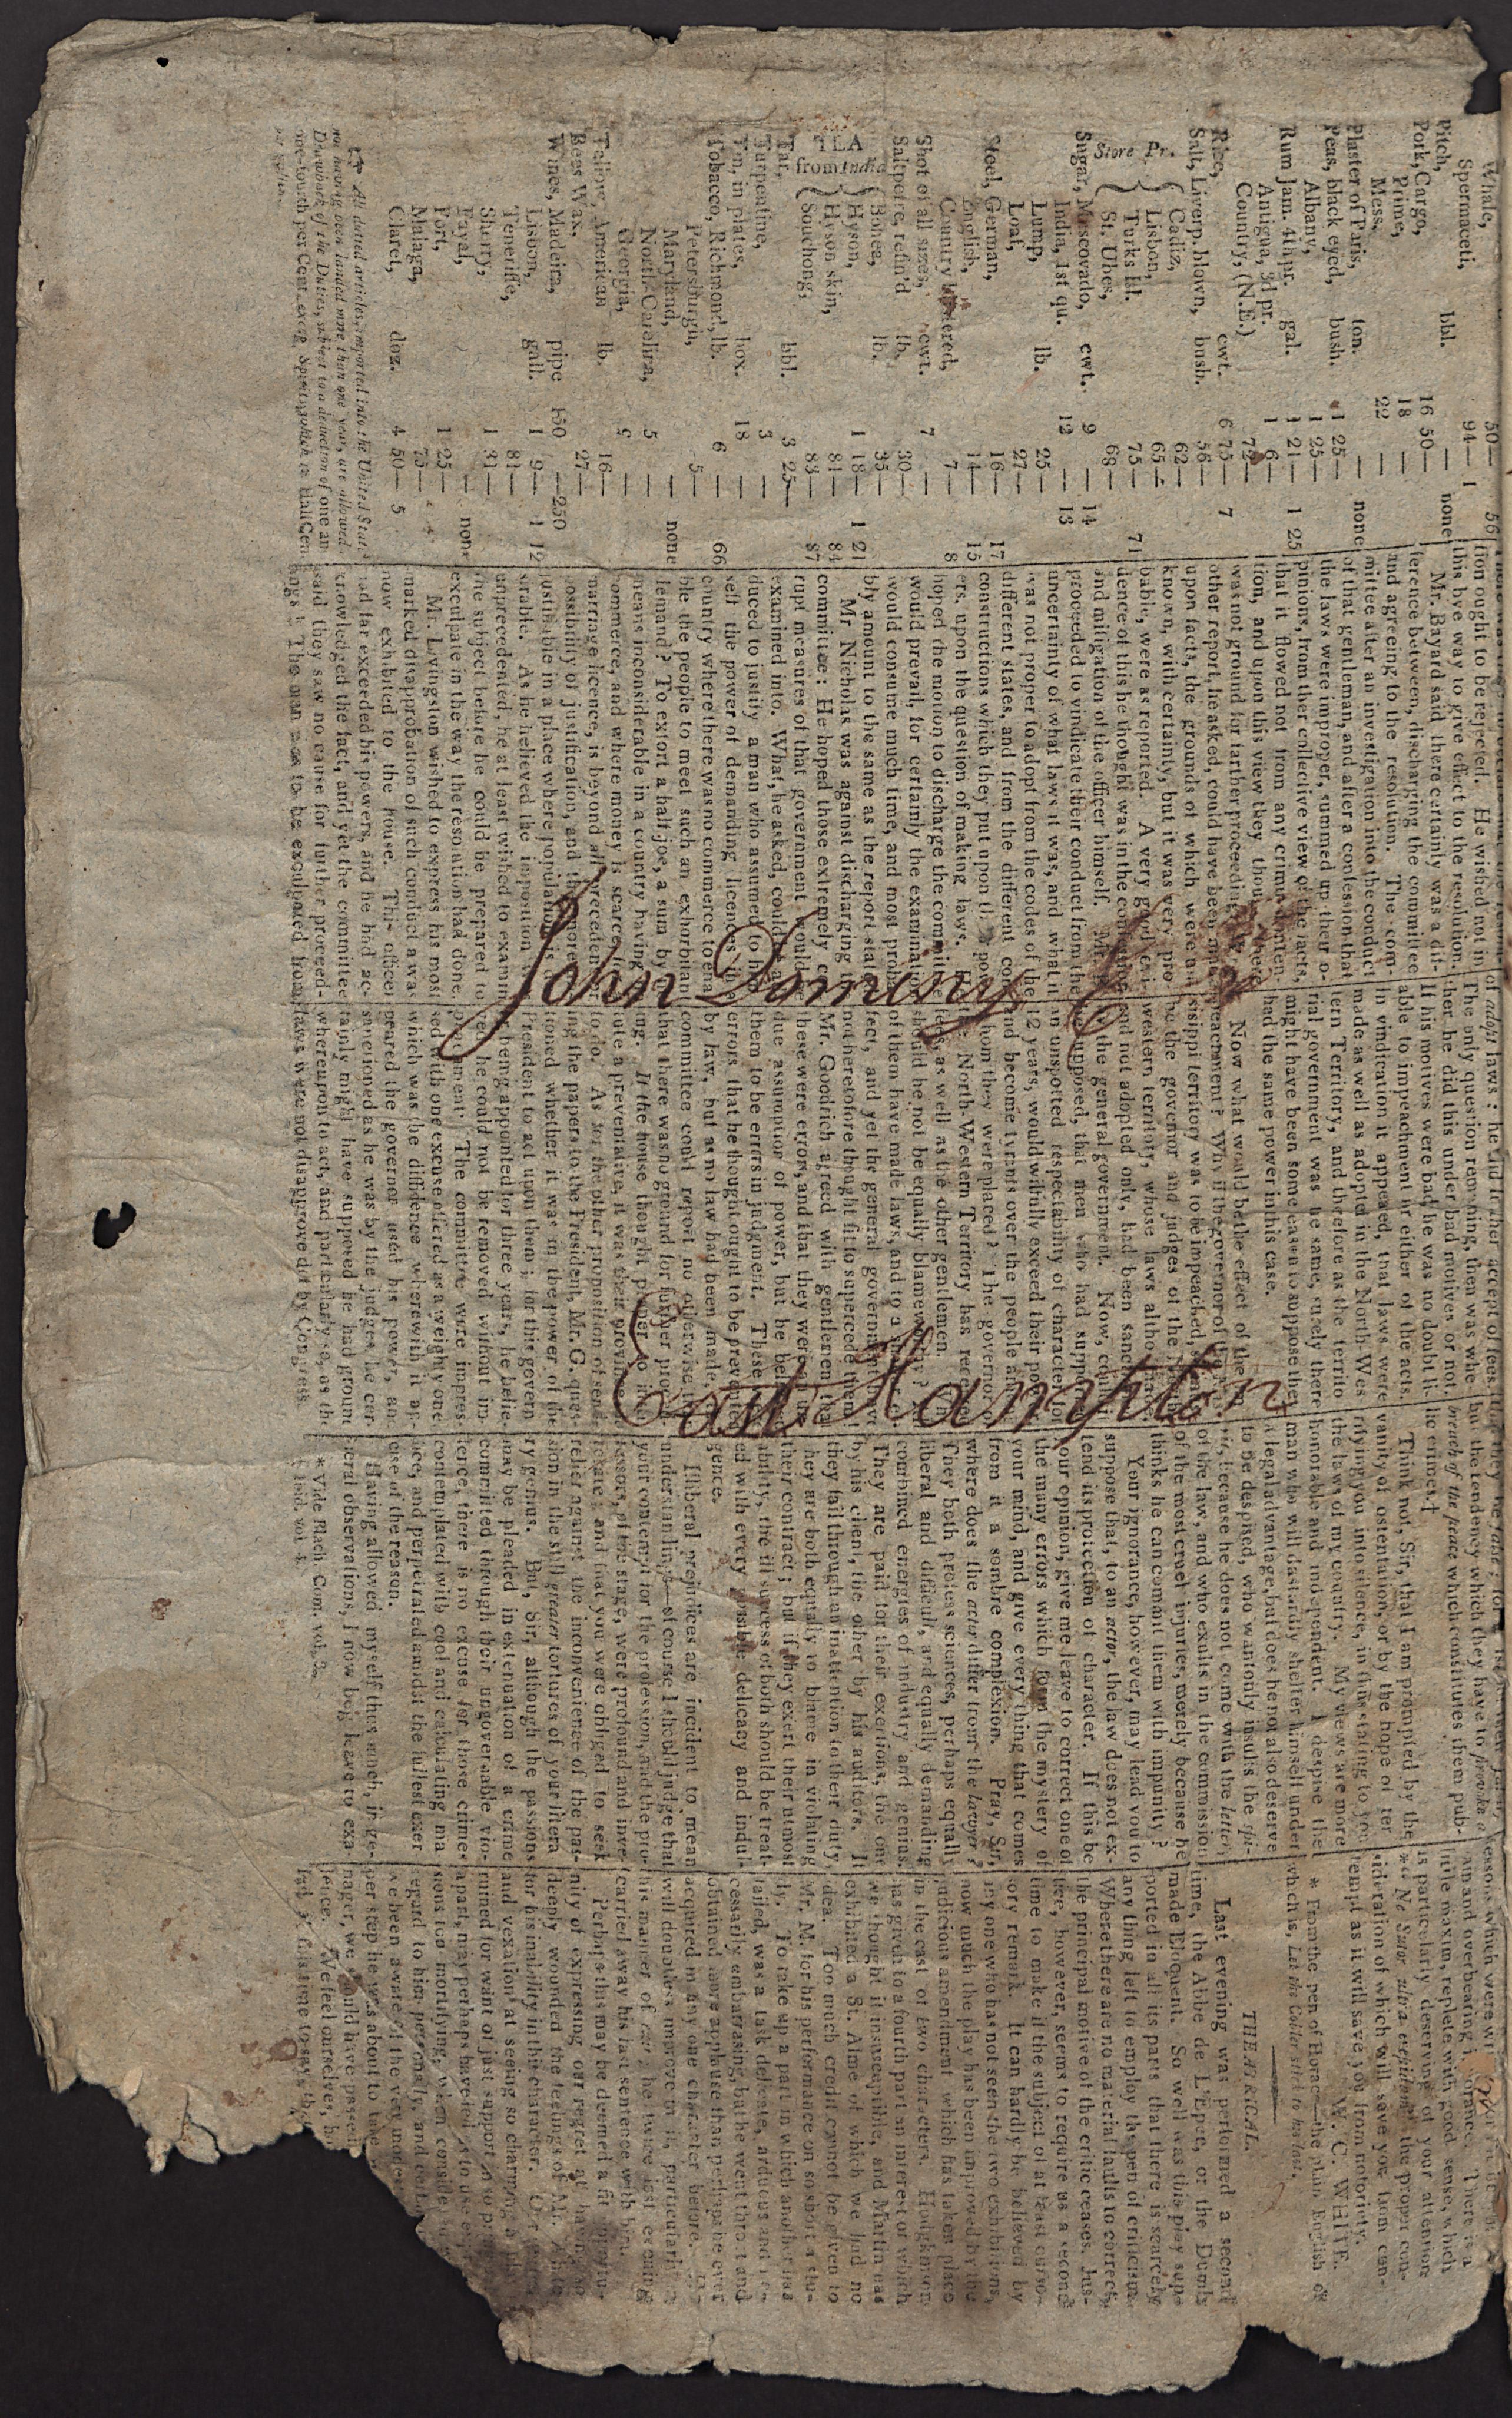 Whale, 50— 56
Spermaceti, 94— 1
Pitch, bbl. — none
Pork, Cargo, 16 50—
Prime, 18 —
Mess, 22 —
Plaster of Paris, ton. — none
Peas, black eyed, bush. 1 25—
Albany, 1 25— 1 25
Rum Jam. 4th pr. gal. 1 21—
Antigua, 3d pr. 1 6—
Country, (N.E.) 72—
Rice, cwt. 6 75— 7
Salt, Liverp. blown, bush. 56—
Cadiz, 62—
Lisbon, 65—
Turks Isl. 75—
St. Ubes, 68— 71
Store Pr.
Sugar, Muscovado, cwt. 9 — 14
India, 1st qu. 12 — 13
Lump, lb. 25—
Loaf, 27—
Steel, German, 16— 17
English, 14— 15
Country 7— 8
Shot of all sizes, cwt. 7 —
Saltpetre, refin'd lb. 30—
TEA from India
Bohea, lb. 35—
Hyson, 1 18— 1 21
Hyson skin, 81— 84
Souchong, 83— 87
Tar, bbl. 3 25—
Turpentine, 3 —
Tin, in plates, box. 18 —
Tobacco, Richmond, lb. 6 — 66
Petersburgh, 5—
Maryland, — none
North-Carolina, 5 —
Georgia, —
Tallow, American lb. 16—
Bees Wax, 27—
Wines, Madeira, pipe 150 —250
Lisbon, gall. 1 9— 1 12
Teneriffe, 81—
Sherry, 1 31—
Fayal, — none
Port, 1 25—
Malaga, 75—
Claret, doz. 4 50— 5
All dotted articles, imported into the United States
not having been landed more than one year, are allowed
Drawback of the Duties, subject to a deduction of one an
one-fourth per Cent. except Spirits, which is Half Cent
per gallon.
tion ought to be rejected. He wished not in
this bye way to give effect to the resolution.
Mr. Bayard said, there certainly was a dif-
ference between, discharging the committee
and agreeing to the resolution. The com-
mittee after an investigation into the conduct
of that gentleman, and after a confession that
the laws were improper, summed up their o-
pinions, from ther collective view of the facts,
that it flowed not from any criminal inten-
tion, and upon this view they thought there
was not ground for further proceeding. What
other report, he asked, could have been made
upon facts, the grounds of which were not
known, with certainty, but it was very pro-
bable, were as reported. A very good evi-
dence of this he thought was in the
and mitigation of the officer himself. Mr.
proceeded to vindicate their conduct from the
uncertainty of what laws it was, and what it
was not proper to adopt from the codes of the
different states, and from the different con-
constructions which they put upon the pow-
ers, upon the question of making laws. He
hoped the motion to discharge the committee
would prevail, for certainly the examination
would consume much time, and most proba-
bly amount to the same as the report stated.
Mr Nicholas was against discharging the
committee: He hoped those extremely cor-
rupt measures of that government would be
examined into. What, he asked, could be ad-
duced to justify a man who assumed to him-
self the power of demanding licences in a
country where there was no commerce to ena-
ble the people to meet such an exhorbitant
demand? To extort a half joe, a sum by no
means inconsiderable in a country having no
commerce, and where money is scarce, for
marriage licences, is beyond all precedent or
possibility of justification, and the more un-
justifiable in a place where population is de-
sirable. As he believed the imposition was
unprecedented, he at least wished to examine
the subject before he could be prepared to
exculpate in the way the resolution had done.
Mr. Livingston wished to express his most
marked disapprobation of such conduct as was
now exhibited to the house. The officer
had far exceeded his powers, and he had ac-
knowledged the fact, and yet the committee
said they saw no cause for further proceed-
ings! The man was to be exculpated from
John Dominy Esqr
East Hampton
of adopt laws: he did rather accept of less
The only question remaining, then was whe-
ther he did this under bad motives or not.
If his motives were bad, he was no doubt li-
able to impeachment or either of the acts.
In vindication it appeared, that laws were
made as well as adopted in the North-Wes-
tern Territory, and therefore as the territo-
rial government was he same, surely there
might have been some reason to suppose they
had the same power in this case.
Now what would be the effect of the im-
peachment? Why if the governor of the Mis-
sisippi territory was to be impeached, so must
be the governor and judges of the North-
western territory, whose laws altho' made
and not adopted only, had been sanctioned
by the general government. Now, could it
be supposed, that men who had supported
an unspotted respectability of character for
12 years, would wilfully exceed their powers
and become tyrants over the people among
whom they were placed? The governor of
the North-Western Territory has received
fees as well as the other gentlemen. Why
should he not be equally blameworthy? All
of them have made laws, and to a bad ef-
fect, and yet the general government have
not heretofore thought fit to supercede them!
Mr. Goodrich agreed with gentlemen that
these were errors, and that they were an un-
due assumption of power, but he believed
them to be errors in judgment. These were
errors that he thought ought to be prevented
by law, but as no law had been made, the
committee could report no otherwise than
that there was no ground for further proceed-
ing. If the house thought proper to insti-
tute a preventative, it was their province
to do. As for the other proposition of send-
ing the papers to the President, Mr. G. ques-
tioned whether it was in the power of the
President to act upon them; for this govern-
or being appointed for three years, he belie-
ved he could not be removed without im-
peachment. The committee were impres-
sed with one excuse offered as a weighty one
which was the diffidence wherewith it ap-
peared the governor used his power, and
sanctioned as he was by the judges, he cer-
tainly might have supposed he had ground
whereupon to act, and particularly so, as the
laws were not disapproved of by Congress.
but the tendency which they have to provoke a
breach of the peace which constitutes them pub-
lic crimes.†
Think not, Sir, that I am prompted by the
vanity of ostentation, or by the hope of ter-
rifying you into silence, in thus stating to you
the laws of my country. My views are more
honorable and independent. I despise the
man who will dastardly shelter himself under
a legal advantage, but does he not also deserve
to be despised, who wantonly insults the spi-
rit, because he does not come with the letter
of the law, and who exults in the commission
of the most cruel injuries, merely because he
thinks he can commit them with impunity?
Your ignorance, however, may lead you to
suppose that, to an actor, the law does not ex-
tend its protection of character. If this be
your opinion, give me leave to correct one of
the many errors which form the mystery of
your mind, and give every thing that comes
from it a sombre complexion. Pray, Sir,
where does the actor differ from the lawyer?
They both profess sciences, perhaps equally
liberal and difficult, and equally demanding
combined energies of industry and genius.
They are paid for their exertions, the one
by his client, the other by his auditors. If
they fail through an inattention to their duty,
they are both equally to blame in violating
their contract; but if they exert their utmost
ability, the ill success of both should be treat-
ed with every possible delicacy and indul-
gence.
Illiberal prejudices are incident to mean
understandings—of course I should judge that
your contempt for the profession, and the pro-
fessors, of the stage, were profound and inve-
terate; and that you were obliged to seek
relief against the inconvenience of the pas-
sion in the still greater tortures of your litera-
ry genius. But, Sir, although the passions
may be pleaded in extenuation of a crime
committed through their ungovernable vio-
lence, there is no excuse for those crimes
contemplated with cool and calculating ma-
lice, and perpetrated amidst the fullest exer-
cise of the reason.
Having allowed myself thus much, in ge-
neral observations, I now beg leave to exa-
* Vide Black. Com. vol. 3.
† Ibid. vol 4.
lessons which were
am and overbearing ignorance. There is a
little maxim, replete with good sense, which
is particularly deserving of your attention
** Ne Sutor ultra crepidam, the proper con-
sideration of which will save you from con-
tempt as it will save you from notoriety.
W. C. WHITE.
* From the pen of Horace—the plain English of
which is, Let the Cobler stick to his last.
THEATRICAL.
Last evening was performed a second
time, the Abbe de L'Epee, or the Dumb
made Eloquent. So well was this play sup-
ported in all its parts that there is scarcely
any thing left to employ the pen of criticism.
Where there are no material faults to correct,
the principal motive of the critic ceases. Jus-
tice, however, seems to require us a second
time to make it the subject of at least curso-
ory remark. It can hardly be believed by
any one who has not seen the two exhibitions,
how much the play has been improved by the
judicious amendment which has taken place
in the cast of two characters. Hodgkinson
has given to a fourth part an interest of which
we thought it insusceptible, and Martin has
exhibited a St. Alme of which we had no
idea. Too much credit cannot be given to
Mr. M. for his performance on so short a stu-
dy. To take up a part in which another has
failed, was a task delicate, arduous and ne-
cessarily embarrassing; but he went thro't and
obtained more applause than perhaps he ever
acquired in any one character before.
will doubtless improve in it, particularly in
his manner of he twice last evening
carried away his last sentence with him.
Perhaps this may be deemed a fit opportu-
nity of expressing our regret at having so
deeply wounded the feelings of Mr. White
for his inability in this character. Our grief
and vexation at seeing so charming a play
ruined for want of just support in so
apart, may perhaps have led us to use
sions too mortifying, when considered
regard to him personally, and could
we been aware of the very modest
per step he was about to take
nager, we should have passed
lence. We feel ourselves,